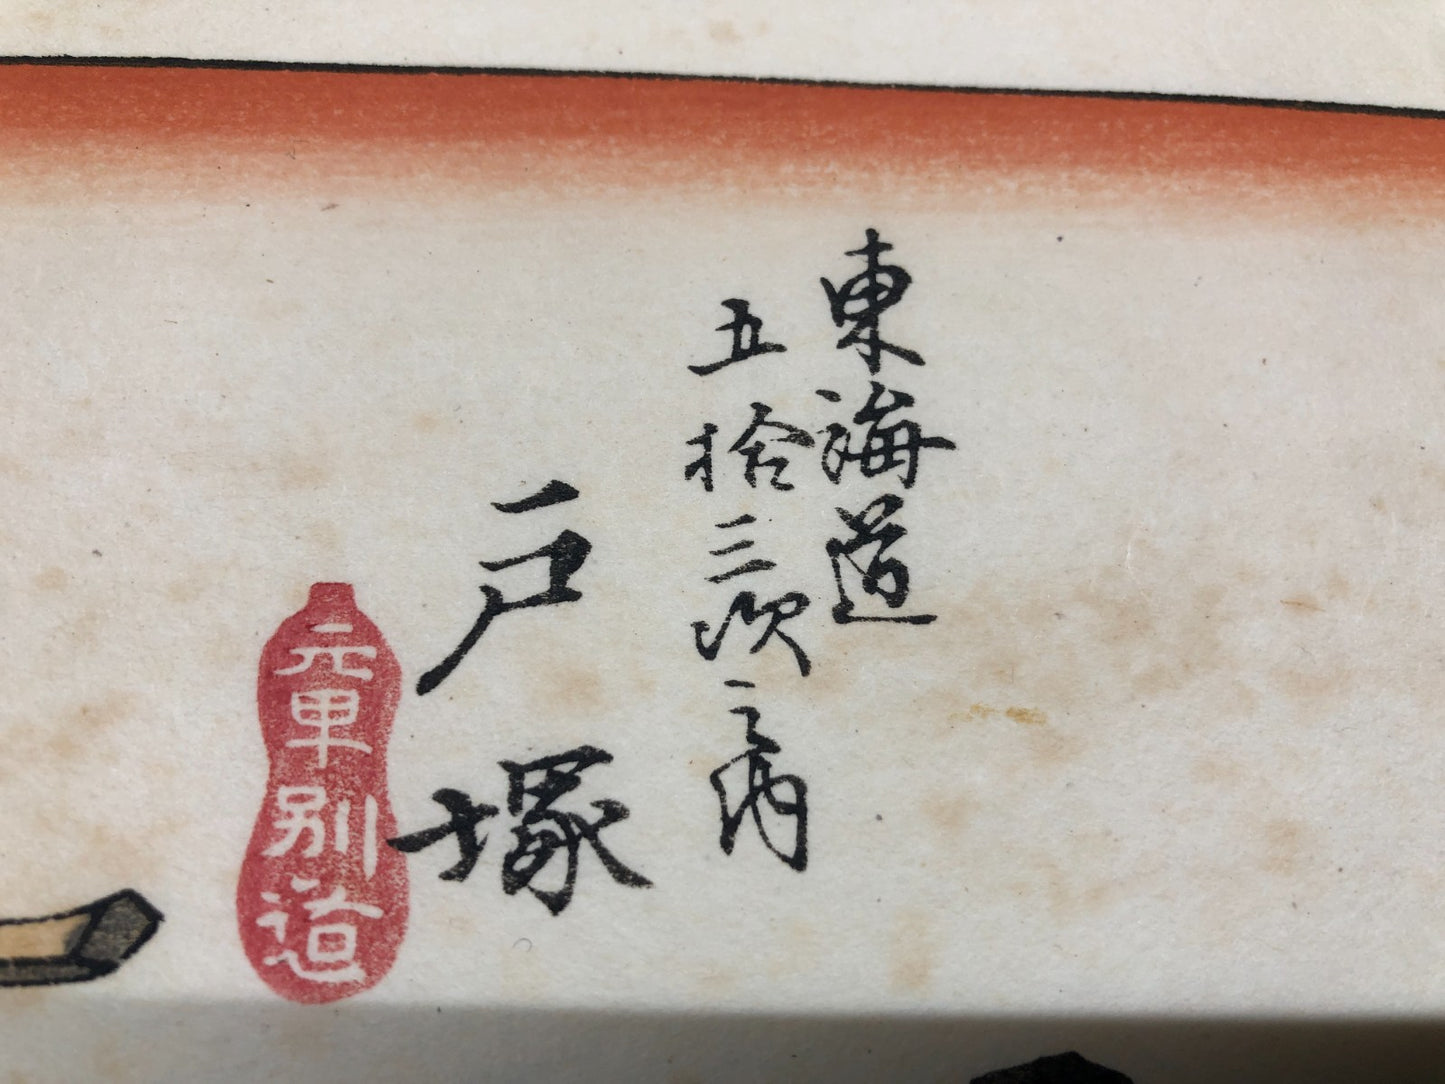 東海道
五拾三次之内
戸塚
元甼別道